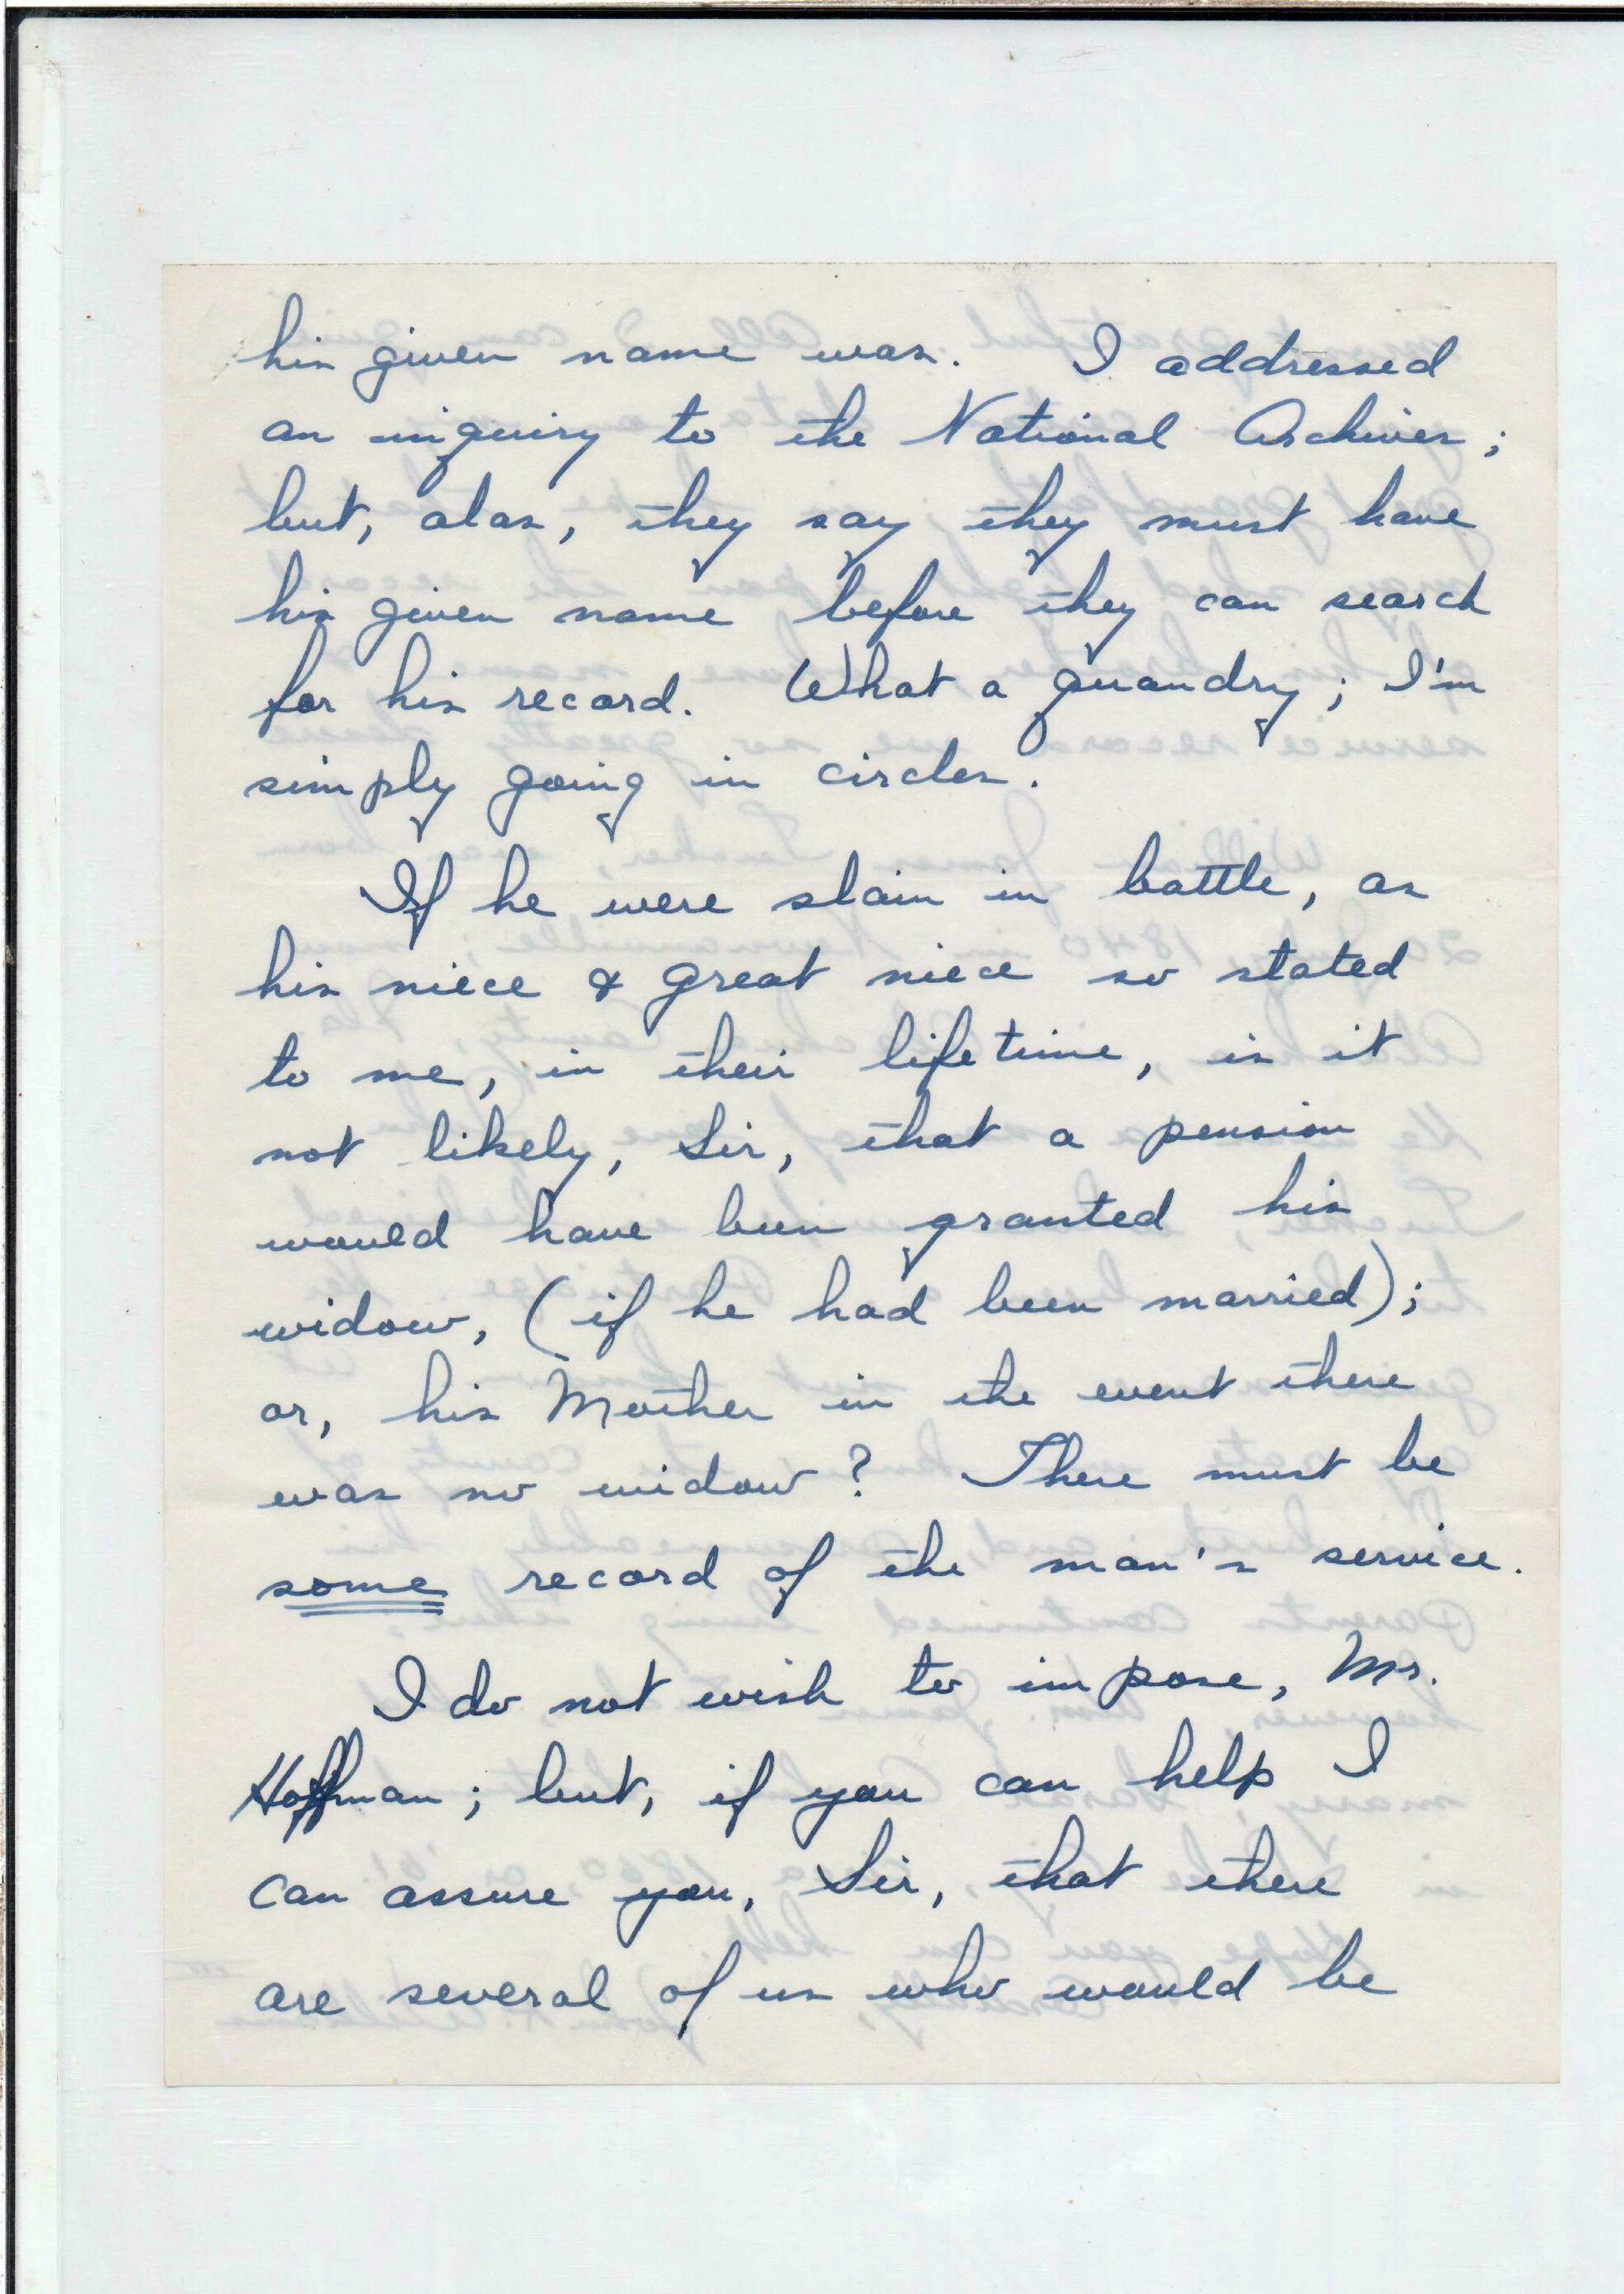 his given name was. I addressed
an inquiry to the National Archives;
but, alas, they say they must have
his given name before they can search
for his record. What a quandry; I'm
simply going in circles.
If he were slain in battle, as
his niece & great niece so stated
to me, in their life time, is it
not likely, Sir, that a pension
would have been granted, his
widow, (if he had been married);
or, his Mother in the event there
was no widow? There must be
some record of the man's service.
I do not wish to impose, Mr.
Hoffman; but, if you can help I
can assure you, Sir, that there
are several of us who would be